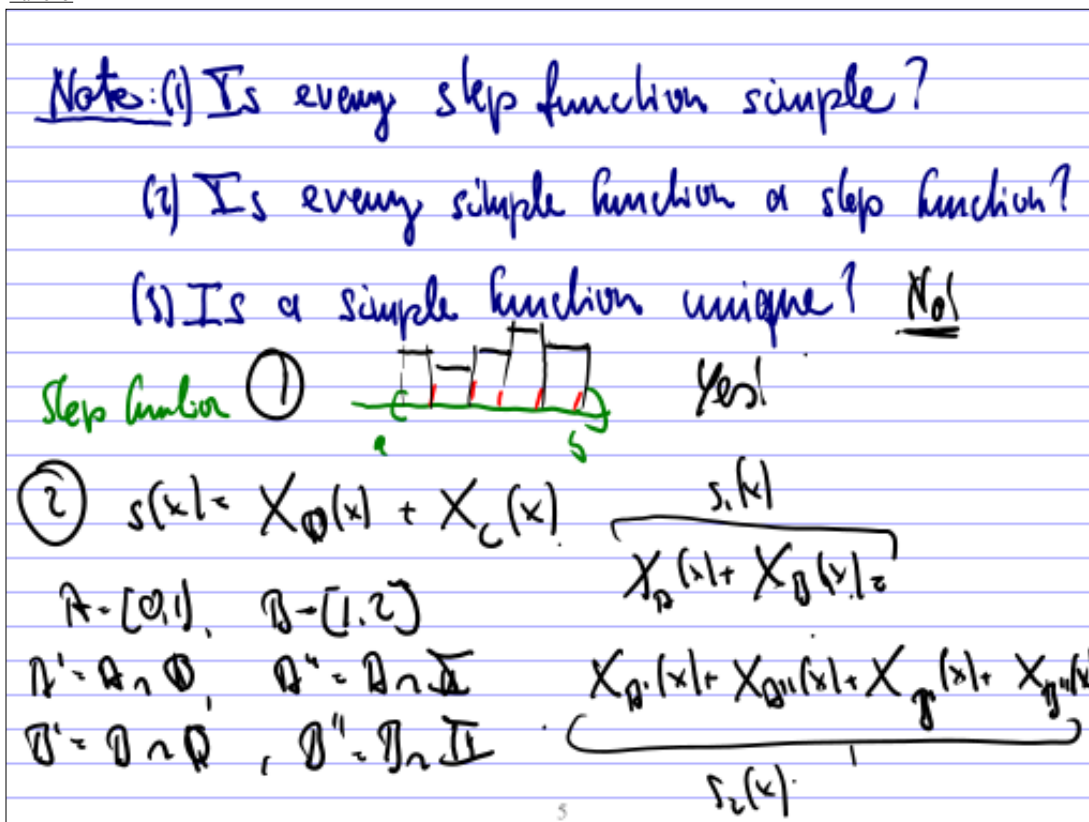 Note: (1) Is every step function simple?
(2) Is every simple function a step function?
(3) Is a simple function unique? No!
Step function ① a b Yes!
② s(x) = X_Q(x) + X_C(x) s₁(x)
X_A(x) + X_B(x) =
A = [0,1), B = [1,2]
A' = A ∩ Q, A'' = A ∩ II X_A'(x) + X_A''(x) + X_B'(x) + X_B''(x)
B' = B ∩ Q, B'' = B ∩ II
s₂(x)
5